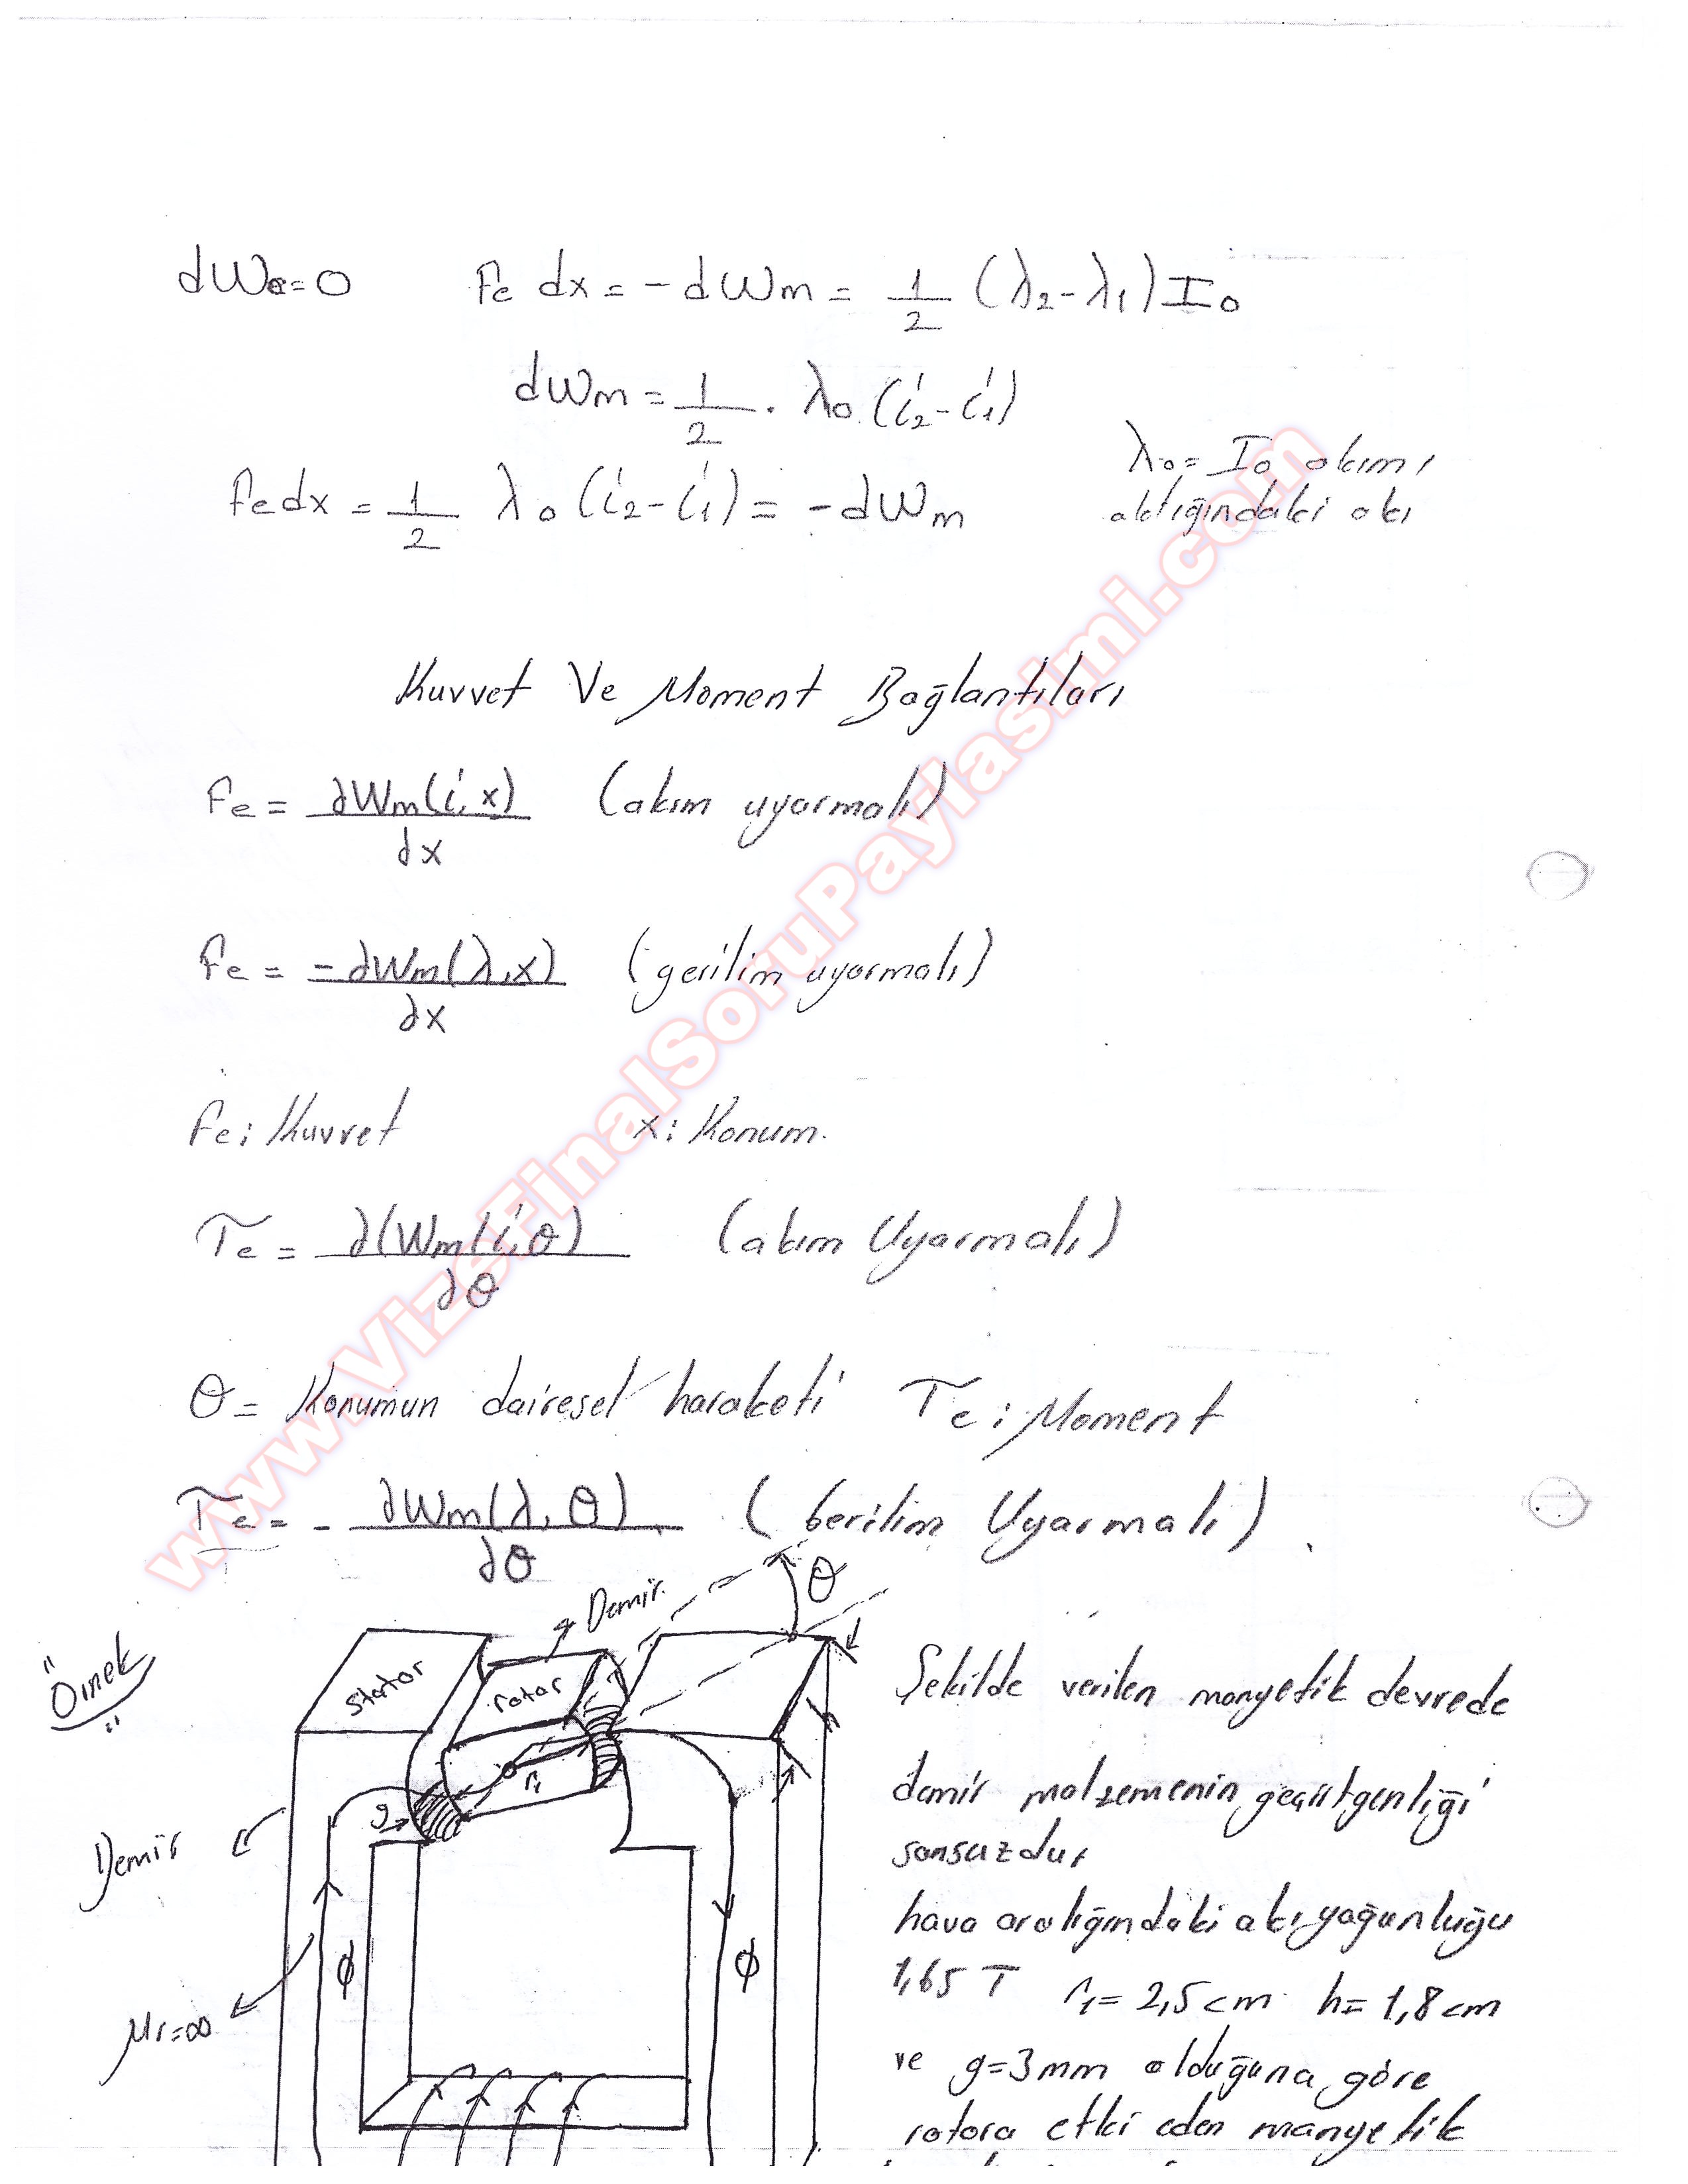 dWe=0 Fe dx = -dWm = 1/2 (λ2-λ1) I0
dWm = 1/2 . λ0 (i2-i1)
λ0= I0 akımı
aktığındaki akı
Fedx = 1/2 λ0 (i2-i1) = -dWm
Kuvvet Ve Moment Bağlantıları
Fe = ∂Wm(i,x)/∂x (akım uyarmalı)
Fe = -∂Wm(λ,x)/∂x (gerilim uyarmalı)
Fe: Kuvvet x: Konum.
Te = ∂(Wm(i,θ)/∂θ (akım Uyarmalı)
θ= Konumun dairesel haraketi Te: Moment
Te = - ∂Wm(λ,θ)/∂θ (Gerilim Uyarmalı).
Örnek
stator
rotor
Demir
θ
h
r1
g
Demir
μr=∞
ϕ
ϕ
Şekilde verilen manyetik devrede
demir malzemenin geçirgenliği
sonsuzdur
hava aralığındaki akı yoğunluğu
1,65 T r1= 2,5 cm h= 1,8 cm
ve g=3mm olduğuna göre
rotora etki eden manyetik
www.VizeFinalSoruPaylasimi.com